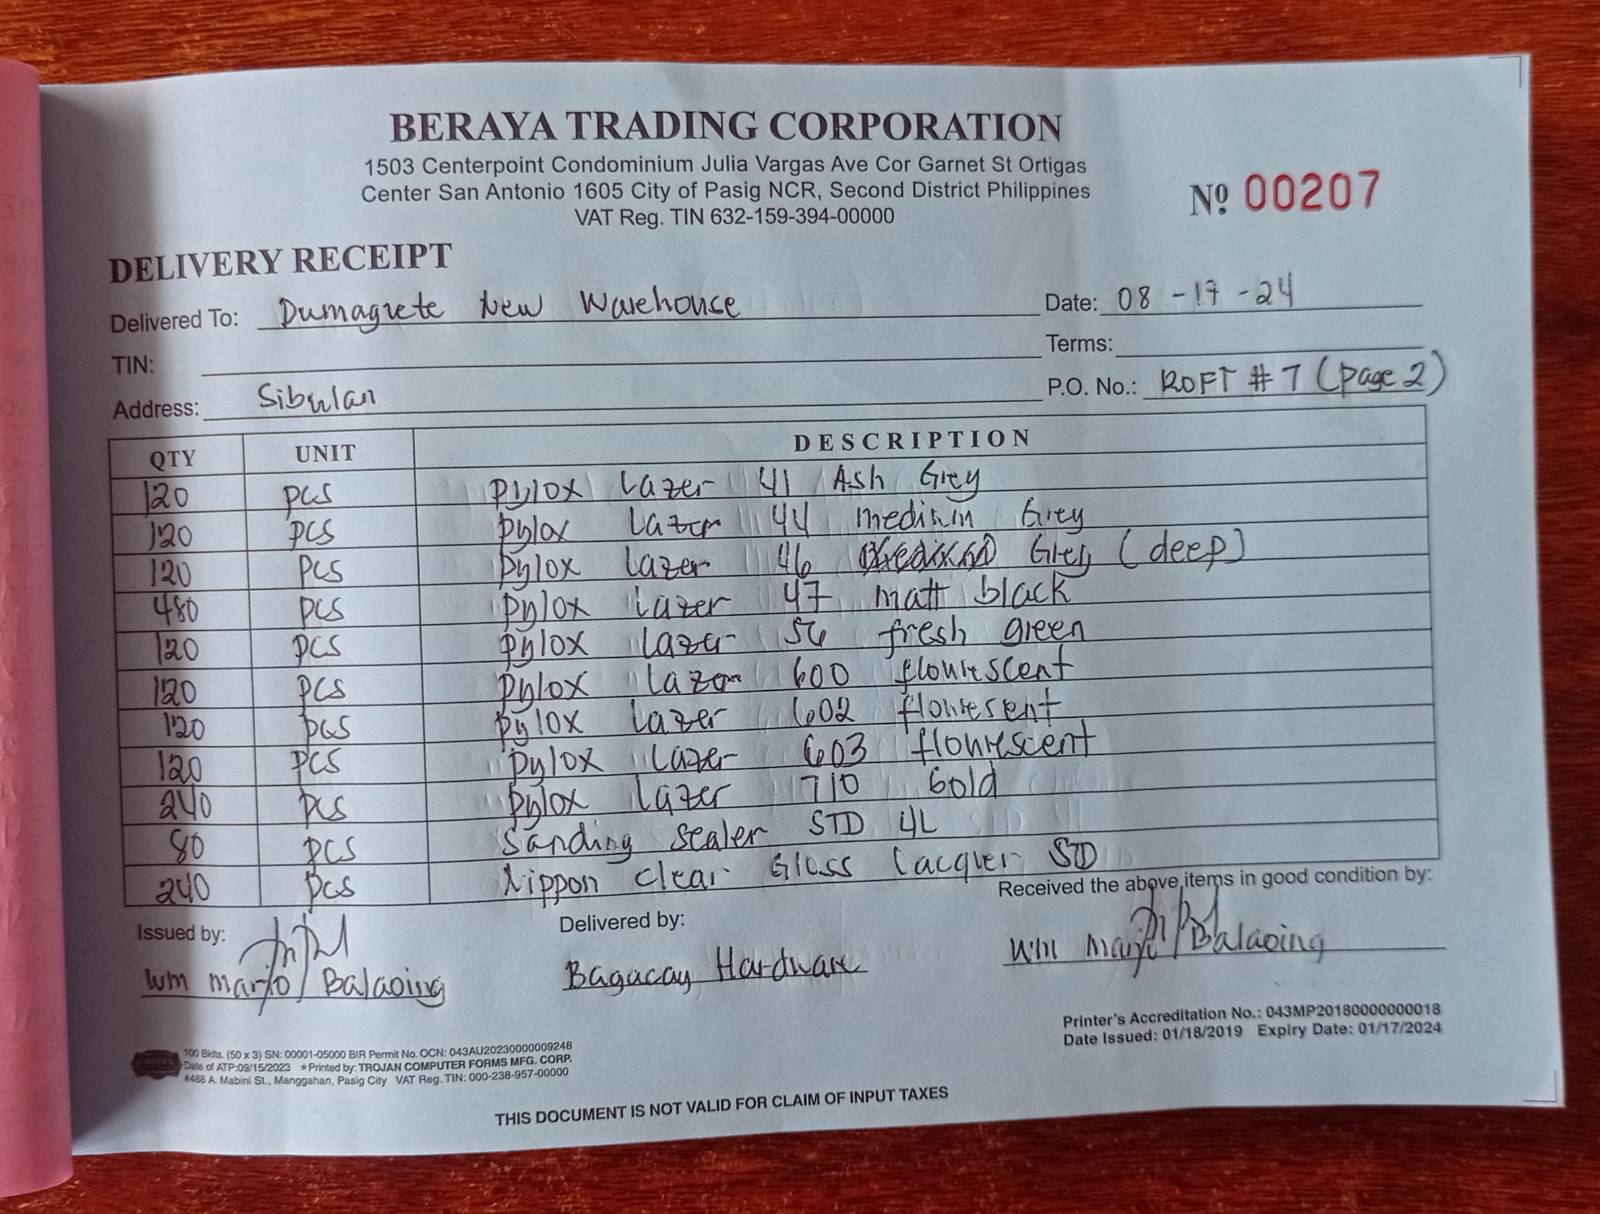 BERAYA TRADING CORPORATION
1503 Centerpoint Condominium Julia Vargas Ave Cor Garnet St Ortigas
Center San Antonio 1605 City of Pasig NCR, Second District Philippines
VAT Reg. TIN 632-159-394-00000
Nº 00207
DELIVERY RECEIPT
Delivered To: Dumagrete New Warehouse
Date: 08-17-24
TIN:
Terms:
Address: Sibulan
P.O. No.: ROFT # 7 (page 2)
QTY UNIT DESCRIPTION
120 pcs Pylox Lazer 41 Ash Grey
120 pcs pylox Lazer 44 medium Grey
120 pcs pylox Lazer 46 Grey (deep)
480 pcs pylox lazer 47 matt black
120 pcs pylox lazer 56 fresh green
120 pcs pylox lazer 600 flourescent
120 pcs pylox lazer 602 flouresent
120 pcs pylox lazer 603 flourescent
240 pcs pylox lazer 710 Gold
80 pcs Sanding sealer STD 4L
240 pcs Nippon clear Gloss Lacquer STD
Received the above items in good condition by:
Issued by:
Delivered by:
wm marjo Balaoing
Bagacay Hardware
wm marjo Balaoing
Printer's Accreditation No.: 043MP20180000000018
Date Issued: 01/18/2019 Expiry Date: 01/17/2024
100 Bklts. (50 x 3) SN: 00001-05000 BIR Permit No. OCN: 043AU20230000009248
Date of ATP:09/15/2023 ★Printed by: TROJAN COMPUTER FORMS MFG. CORP.
#488 A. Mabini St., Manggahan, Pasig City VAT Reg. TIN: 000-238-957-00000
THIS DOCUMENT IS NOT VALID FOR CLAIM OF INPUT TAXES